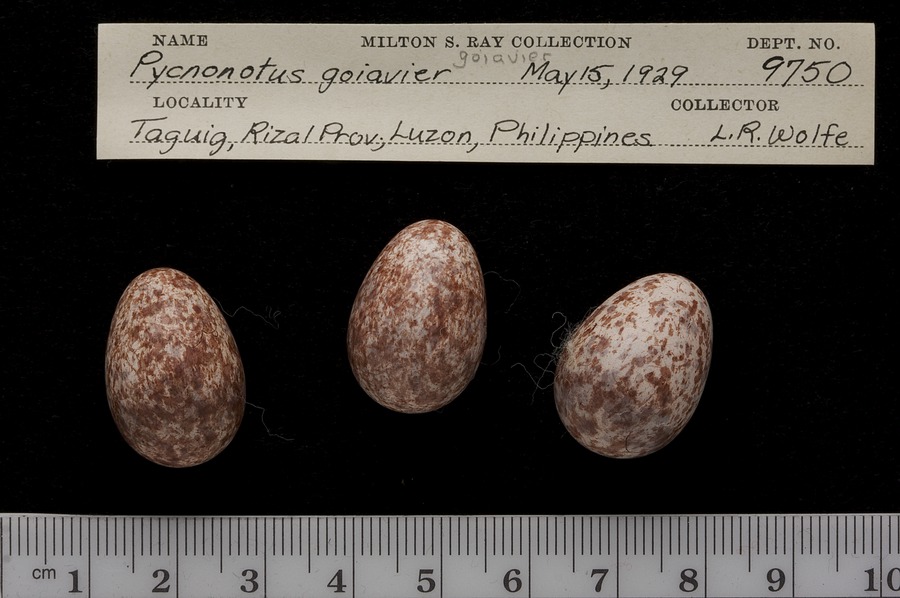 NAME MILTON S. RAY COLLECTION DEPT. NO.
goiavier
Pycnonotus goiavier May 15, 1929 9750
LOCALITY COLLECTOR
Taguig, Rizal Prov., Luzon, Philippines L.R. Wolfe
cm 1 2 3 4 5 6 7 8 9 10